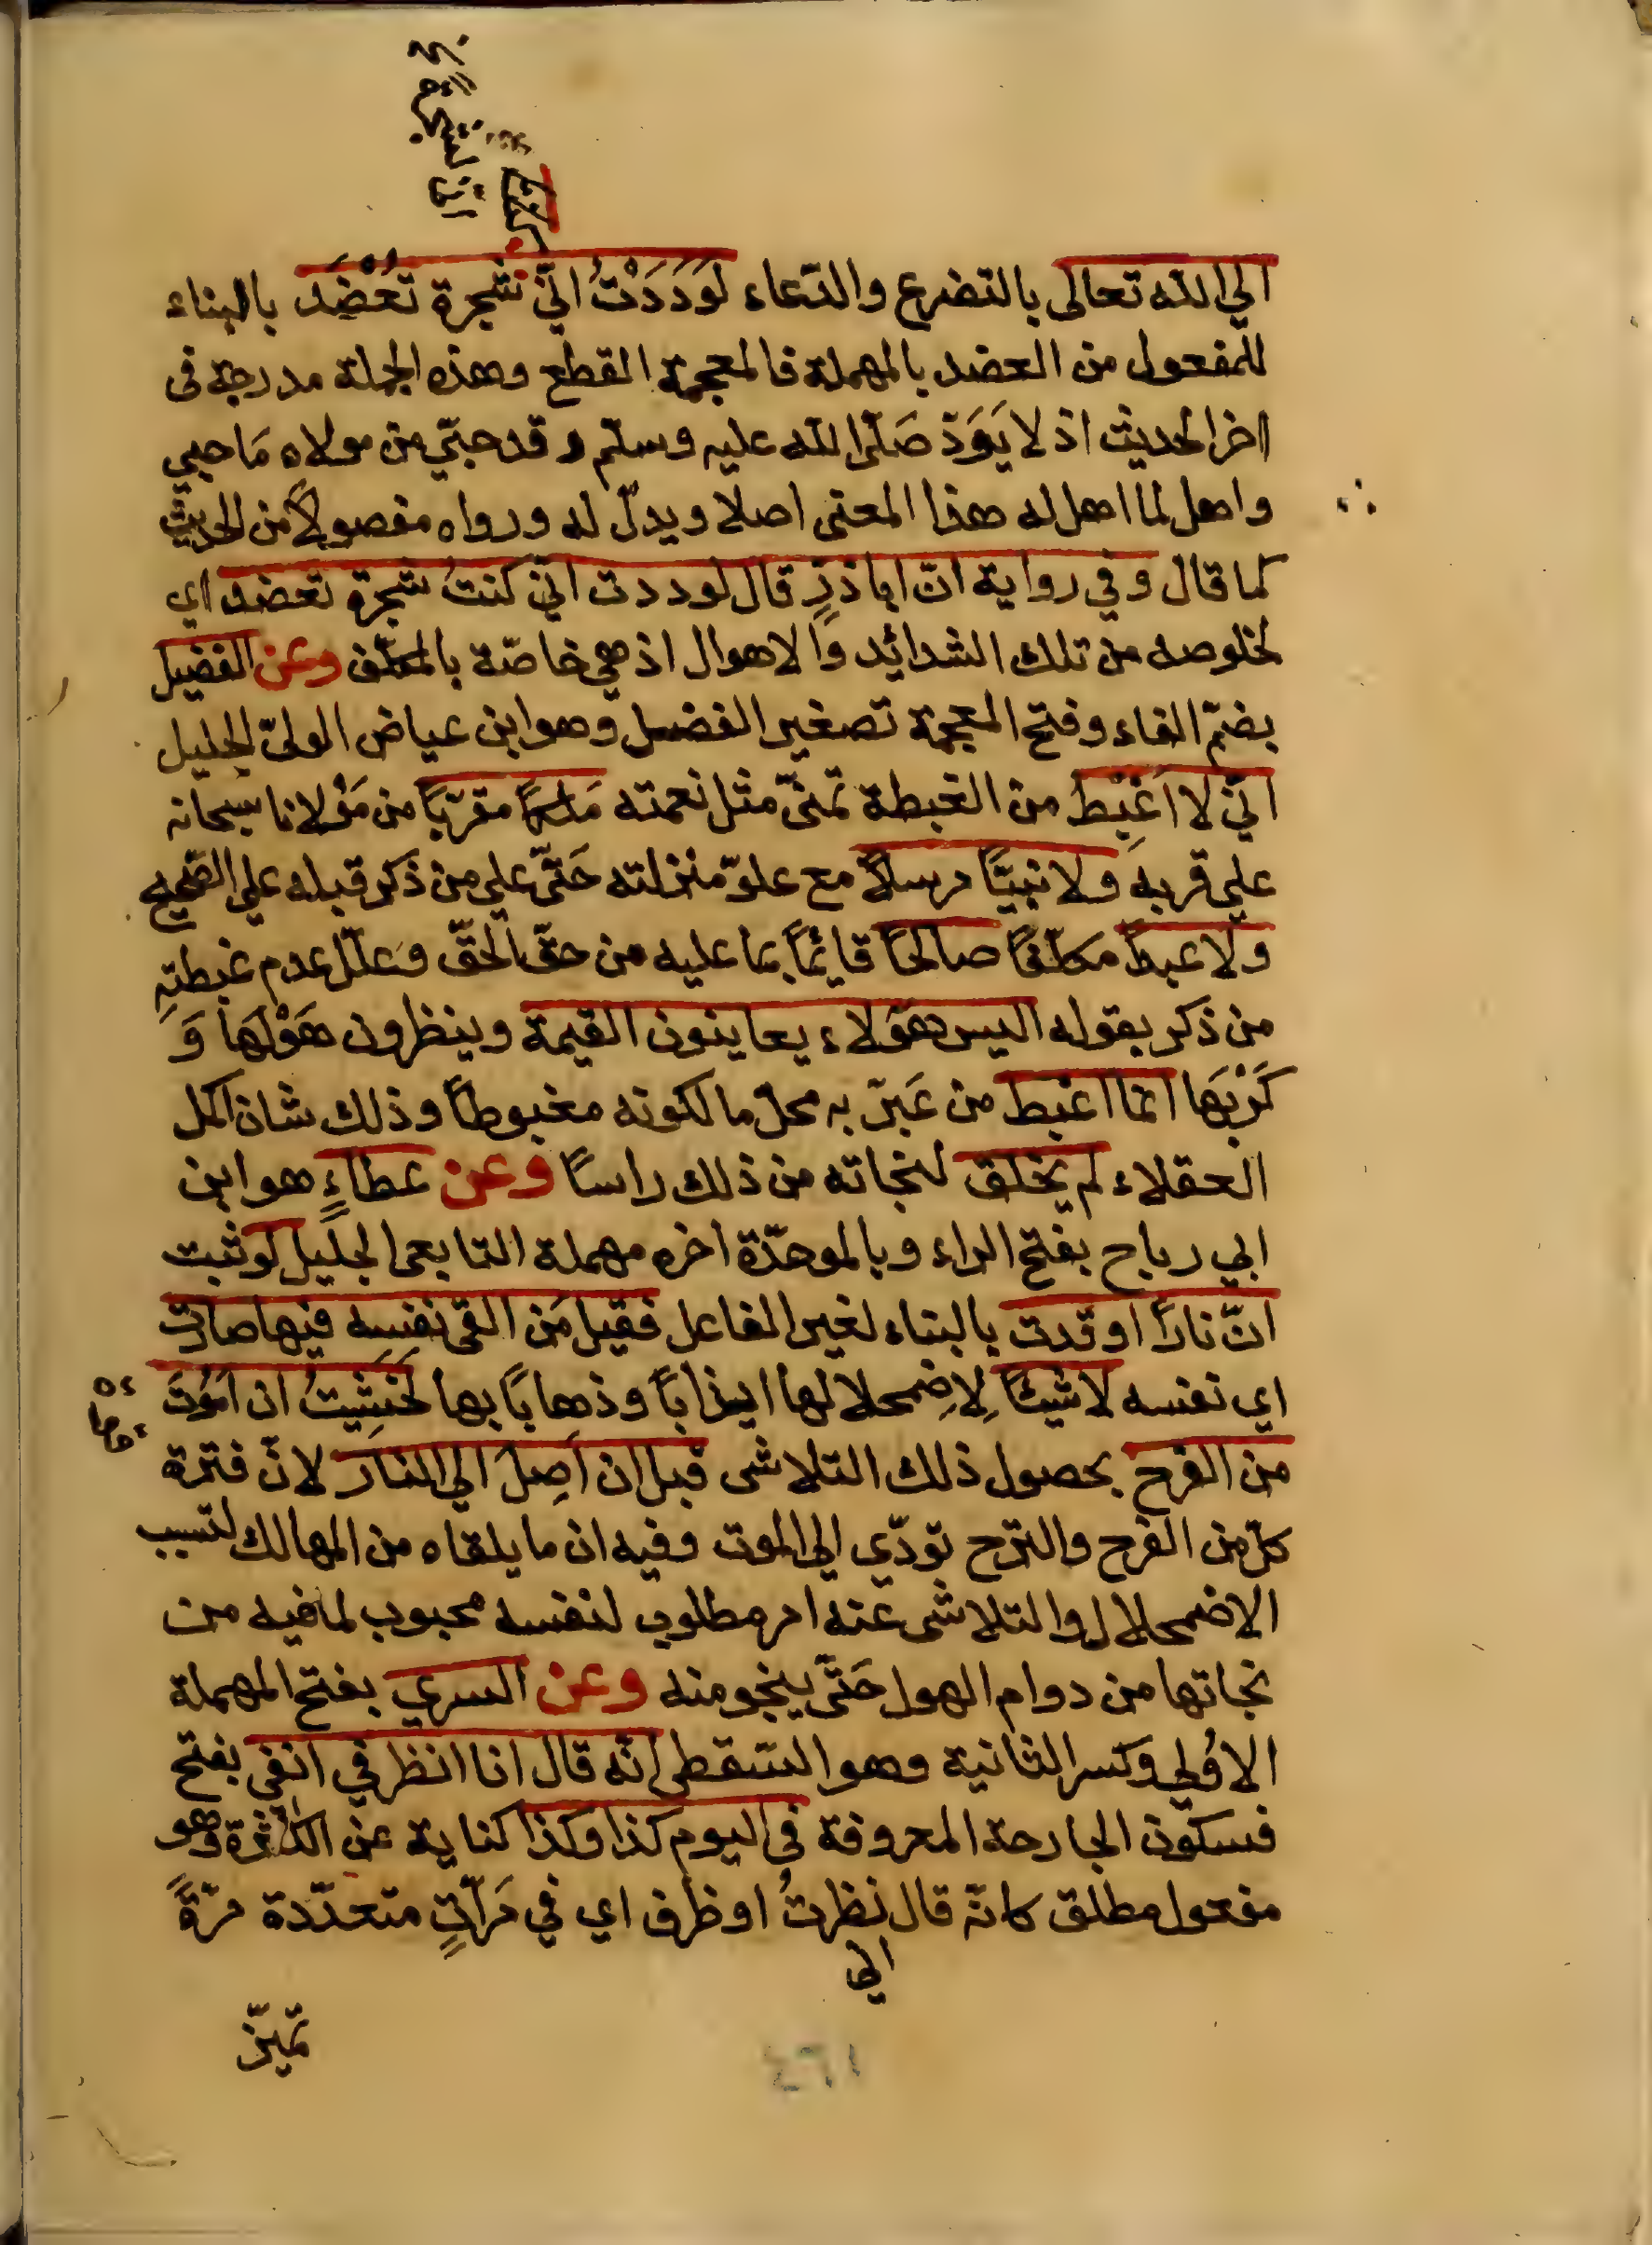 الي الله تعالى بالتضرع والدّعاء لَوَدَدْتُ انّي شجرة تُعْضَد بالبناء
للمفعول من العضد بالمهملة فالمعجمة القطع وهذه الجملة مدرجة فى
اخر الحديث اذ لا يَوَدّ صَلّى الله عليه وسلّم وقد حبي من مولاه مَا حبي
واهل لما اهل له هذا المعنى اصلا ويدلّ له ورواه مفصولاً من الحديث
كما قال وفي رواية انّ اباذرٍ قال لوددت انّي كنتُ شجرة تعضد اي
لخلوصه من تلك الشدائد والاهوال اذ هي خاصّة بالمكلّف وعن الفضيل
بضمّ الفاء وفتح المعجمة تصغير الفضل وهو ابن عياض الوليّ الجليل
انّي لا اَغْبِط من الغبطة تمنّي مثل نعمته مَلكاً مقرّباً من مَوْلانا سبحانه
على قربه ولا نبيًّا مرسلاً مع علوّ منزلته حَتّى على من ذكر قبله على الصّحيح
ولا عبداً مكلّفاً صالحًا قائماً بما عليه من حقّ الحقّ وعلّل عدم غبطته
من ذكر بقوله اليس هؤلاء يعاينون القيمة وينظرون هَوْلهَا وَ
كَرْبَهَا انما اغبط من عَبّر به محل ما لكونه مغبوطاً وذلك شان اكمل
العقلاء لم يخلق لنجاته من ذلك راسًا وعن عطاءٍ هو ابن
ابي رباح بفتح الراء وبالموحّدة اخره مهملة التابعى الجليل لو ثبت
انّ ناراً اوقدت بالبناء لغير الفاعل فقيل مَن القى نفسه فيها صارت
اي نفسه لاشيئاً لِاضِمحلالها ايذاباً وذهاباً بها لخَشِيتُ ان اَمُوتَ
من الفرح بحصول ذلك التلاشى قبل ان اَصِلَ الي النار لانّ فترة
كلّ من الفرح والترح تودّي الي الموت وفيه ان ما يلقاه من المهالك لتسبب
الاضمحلال والتلاشى عنه امر مطلوب لنفسه محبوب لما فيه من
نجاتها من دوام الهول حَتّى ينجو منه وعن السري بفتح المهملة
الاُولى وكسر الثانية وهو السّقطى انّه قال انا انظر في انفى بفتح
فسكون الجارحة المعروفة فى اليوم كذا وكذا كناية عن الكثرة وهو
مفعول مطلق كانّه قال نظرتُ او ظرف اي في مَرّاتٍ متعدّدة مرّةً
الي
تميّز
٤٦١